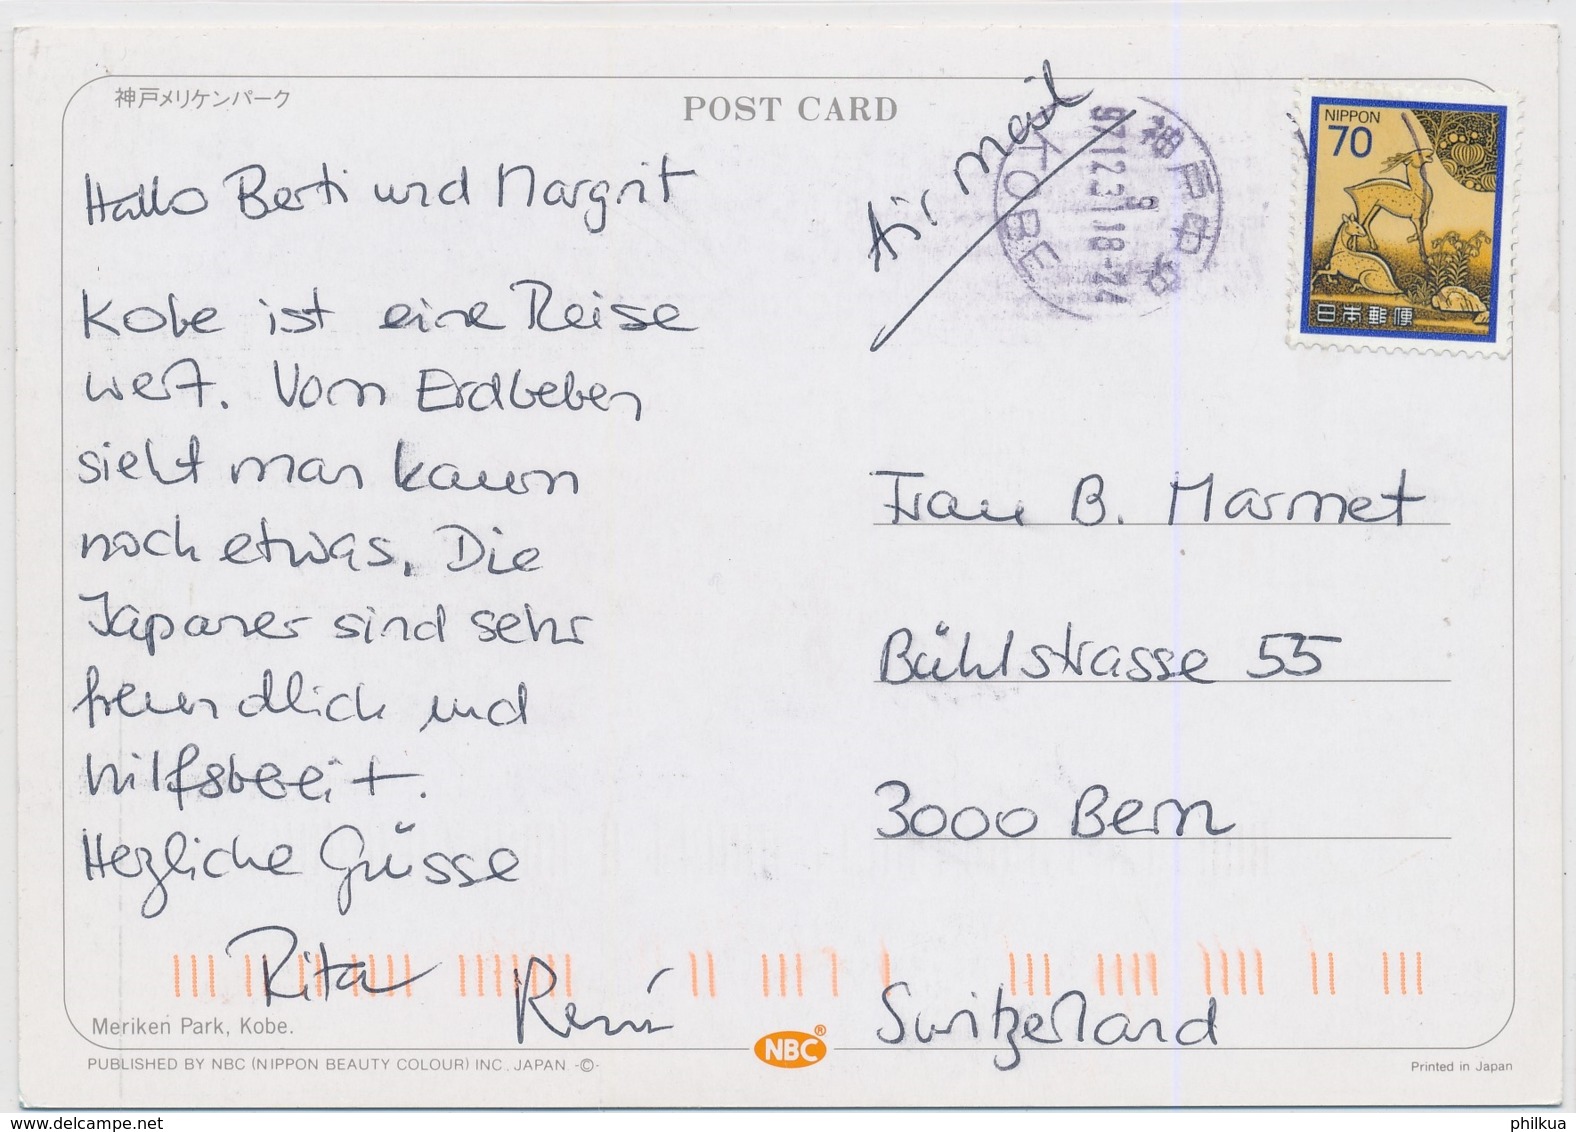 神戸メリケンパーク
POST CARD
Air mail
神戸中央
9
97.12.31 18-24
KOBE
NIPPON
70
日本郵便
Hallo Berti und Margrit
Kobe ist eine Reise
wert. Vom Erdbeben
sieht man kaum
noch etwas. Die
Japaner sind sehr
freundlich und
hilfsbereit.
Herzliche Grüsse
Rita René
Frau B. Marmet
Bühlstrasse 55
3000 Bern
Switzerland
Meriken Park, Kobe.
PUBLISHED BY NBC (NIPPON BEAUTY COLOUR) INC. JAPAN -©-
NBC®
Printed in Japan
delcampe.net
philkua